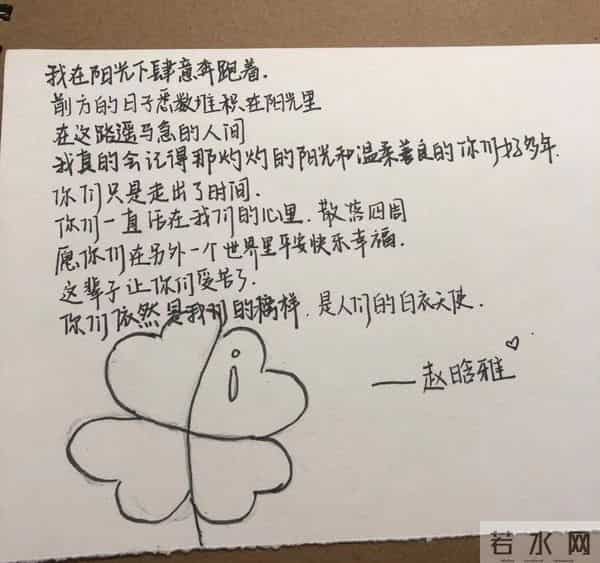 我在阳光下肆意奔跑着.
前方的日子悉数堆积在阳光里
在这路遥马急的人间
我真的会记得那灼灼的阳光和温柔善良的你们好多年.
你们只是走出了时间.
你们一直活在我们的心里.散落四周
愿你们在另外一个世界里平安快乐幸福.
这辈子让你们受苦了.
你们依然是我们的榜样.是人们的白衣天使.
——赵晗雅
若水网